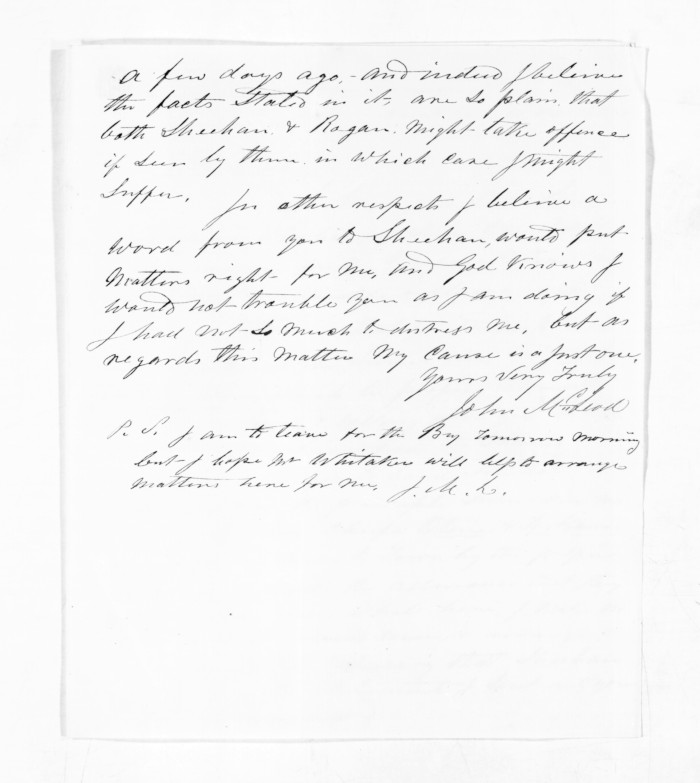 a few days ago, - and indeed I believe
the facts stated in it are so plain that
both Sheehan & Rogan might take offence
if seen by them in which case I might
suffer.
In other respects I believe a
word from you to Sheehan, would put
matters right for me, and God Knows I
would not trouble you as I am doing if
I had not so much to distress me, but as
regards this matter My Cause is a Just one.
Yours Very Truly
John McLeod
P.S. I am to leave for the Bay tomorrow morning
but I hope Mr Whitaker will help to arrange
matters here for me. J. M. L.